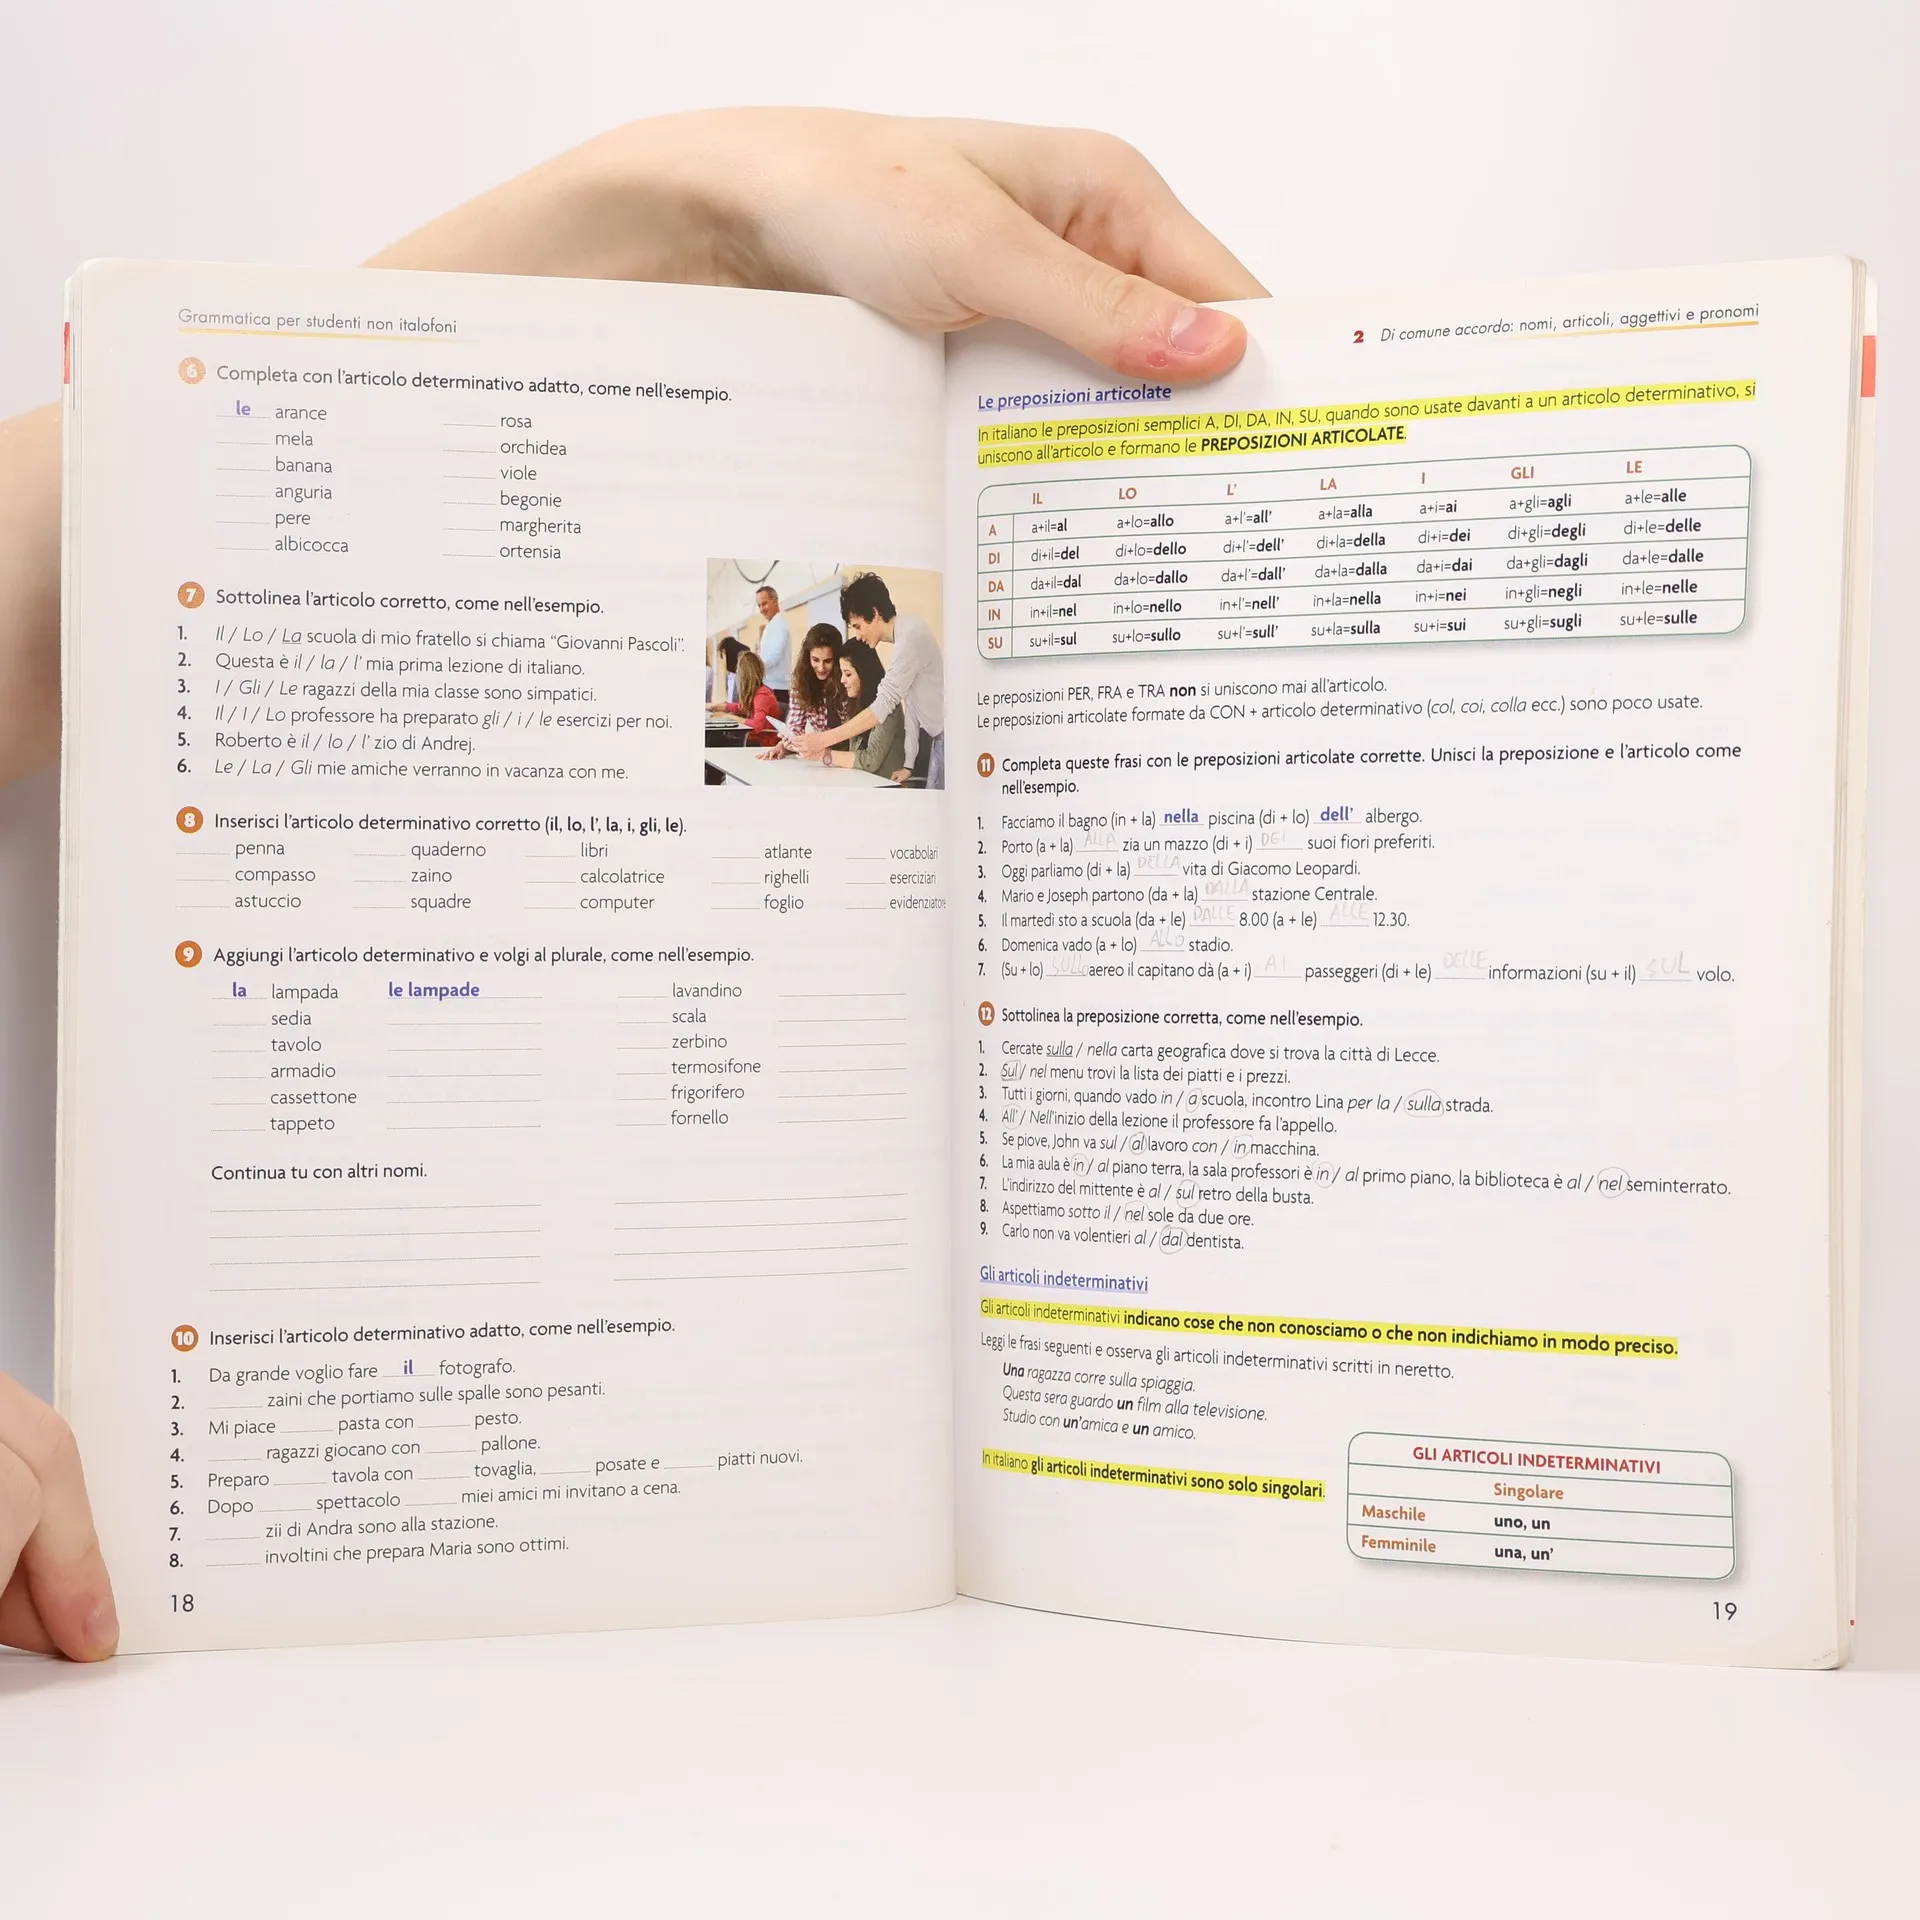 Grammatica per studenti non italofoni
6 Completa con l'articolo determinativo adatto, come nell'esempio.
le arance rosa
mela orchidea
banana viole
anguria begonie
pere margherita
albicocca ortensia
7 Sottolinea l'articolo corretto, come nell'esempio.
1. Il / Lo / La scuola di mio fratello si chiama "Giovanni Pascoli".
2. Questa è il / la / l' mia prima lezione di italiano.
3. I / Gli / Le ragazzi della mia classe sono simpatici.
4. Il / I / Lo professore ha preparato gli / i / le esercizi per noi.
5. Roberto è il / lo / l' zio di Andrej.
6. Le / La / Gli mie amiche verranno in vacanza con me.
8 Inserisci l'articolo determinativo corretto (il, lo, l', la, i, gli, le).
penna quaderno libri atlante vocabolari
compasso zaino calcolatrice righelli eserciziari
astuccio squadre computer foglio evidenziatore
9 Aggiungi l'articolo determinativo e volgi al plurale, come nell'esempio.
la lampada le lampade lavandino
sedia scala
tavolo zerbino
armadio termosifone
cassettone frigorifero
tappeto fornello
Continua tu con altri nomi.
10 Inserisci l'articolo determinativo adatto, come nell'esempio.
1. Da grande voglio fare il fotografo.
2. ______ zaini che portiamo sulle spalle sono pesanti.
3. Mi piace ______ pasta con ______ pesto.
4. ______ ragazzi giocano con ______ pallone.
5. Preparo ______ tavola con ______ tovaglia, ______ posate e ______ piatti nuovi.
6. Dopo ______ spettacolo ______ miei amici mi invitano a cena.
7. ______ zii di Andra sono alla stazione.
8. ______ involtini che prepara Maria sono ottimi.
18
2 Di comune accordo: nomi, articoli, aggettivi e pronomi
Le preposizioni articolate
In italiano le preposizioni semplici A, DI, DA, IN, SU, quando sono usate davanti a un articolo determinativo, si
uniscono all'articolo e formano le PREPOSIZIONI ARTICOLATE.
IL LO L' LA I GLI LE
A a+il=al a+lo=allo a+l'=all' a+la=alla a+i=ai a+gli=agli a+le=alle
DI di+il=del di+lo=dello di+l'=dell' di+la=della di+i=dei di+gli=degli di+le=delle
DA da+il=dal da+lo=dallo da+l'=dall' da+la=dalla da+i=dai da+gli=dagli da+le=dalle
IN in+il=nel in+lo=nello in+l'=nell' in+la=nella in+i=nei in+gli=negli in+le=nelle
SU su+il=sul su+lo=sullo su+l'=sull' su+la=sulla su+i=sui su+gli=sugli su+le=sulle
Le preposizioni PER, FRA e TRA non si uniscono mai all'articolo.
Le preposizioni articolate formate da CON + articolo determinativo (col, coi, colla ecc.) sono poco usate.
11 Completa queste frasi con le preposizioni articolate corrette. Unisci la preposizione e l'articolo come
nell'esempio.
1. Facciamo il bagno (in + la) nella piscina (di + lo) dell' albergo.
2. Porto (a + la) ALLA zia un mazzo (di + i) DEI suoi fiori preferiti.
3. Oggi parliamo (di + la) DELLA vita di Giacomo Leopardi.
4. Mario e Joseph partono (da + la) DALLA stazione Centrale.
5. Il martedì sto a scuola (da + le) DALLE 8.00 (a + le) ALLE 12.30.
6. Domenica vado (a + lo) ALLO stadio.
7. (Su + lo) SULLO aereo il capitano dà (a + i) AI passeggeri (di + le) DELLE informazioni (su + il) SUL volo.
12 Sottolinea la preposizione corretta, come nell'esempio.
1. Cercate sulla / nella carta geografica dove si trova la città di Lecce.
2. Sul / nel menu trovi la lista dei piatti e i prezzi.
3. Tutti i giorni, quando vado in / a scuola, incontro Lina per la / sulla strada.
4. All' / Nell'inizio della lezione il professore fa l'appello.
5. Se piove, John va sul / al lavoro con / in macchina.
6. La mia aula è in / al piano terra, la sala professori è in / al primo piano, la biblioteca è al / nel seminterrato.
7. L'indirizzo del mittente è al / sul retro della busta.
8. Aspettiamo sotto il / nel sole da due ore.
9. Carlo non va volentieri al / dal dentista.
Gli articoli indeterminativi
Gli articoli indeterminativi indicano cose che non conosciamo o che non indichiamo in modo preciso.
Leggi le frasi seguenti e osserva gli articoli indeterminativi scritti in neretto.
Una ragazza corre sulla spiaggia.
Questa sera guardo un film alla televisione.
Studio con un'amica e un amico.
In italiano gli articoli indeterminativi sono solo singolari.
GLI ARTICOLI INDETERMINATIVI
Singolare
Maschile uno, un
Femminile una, un'
19